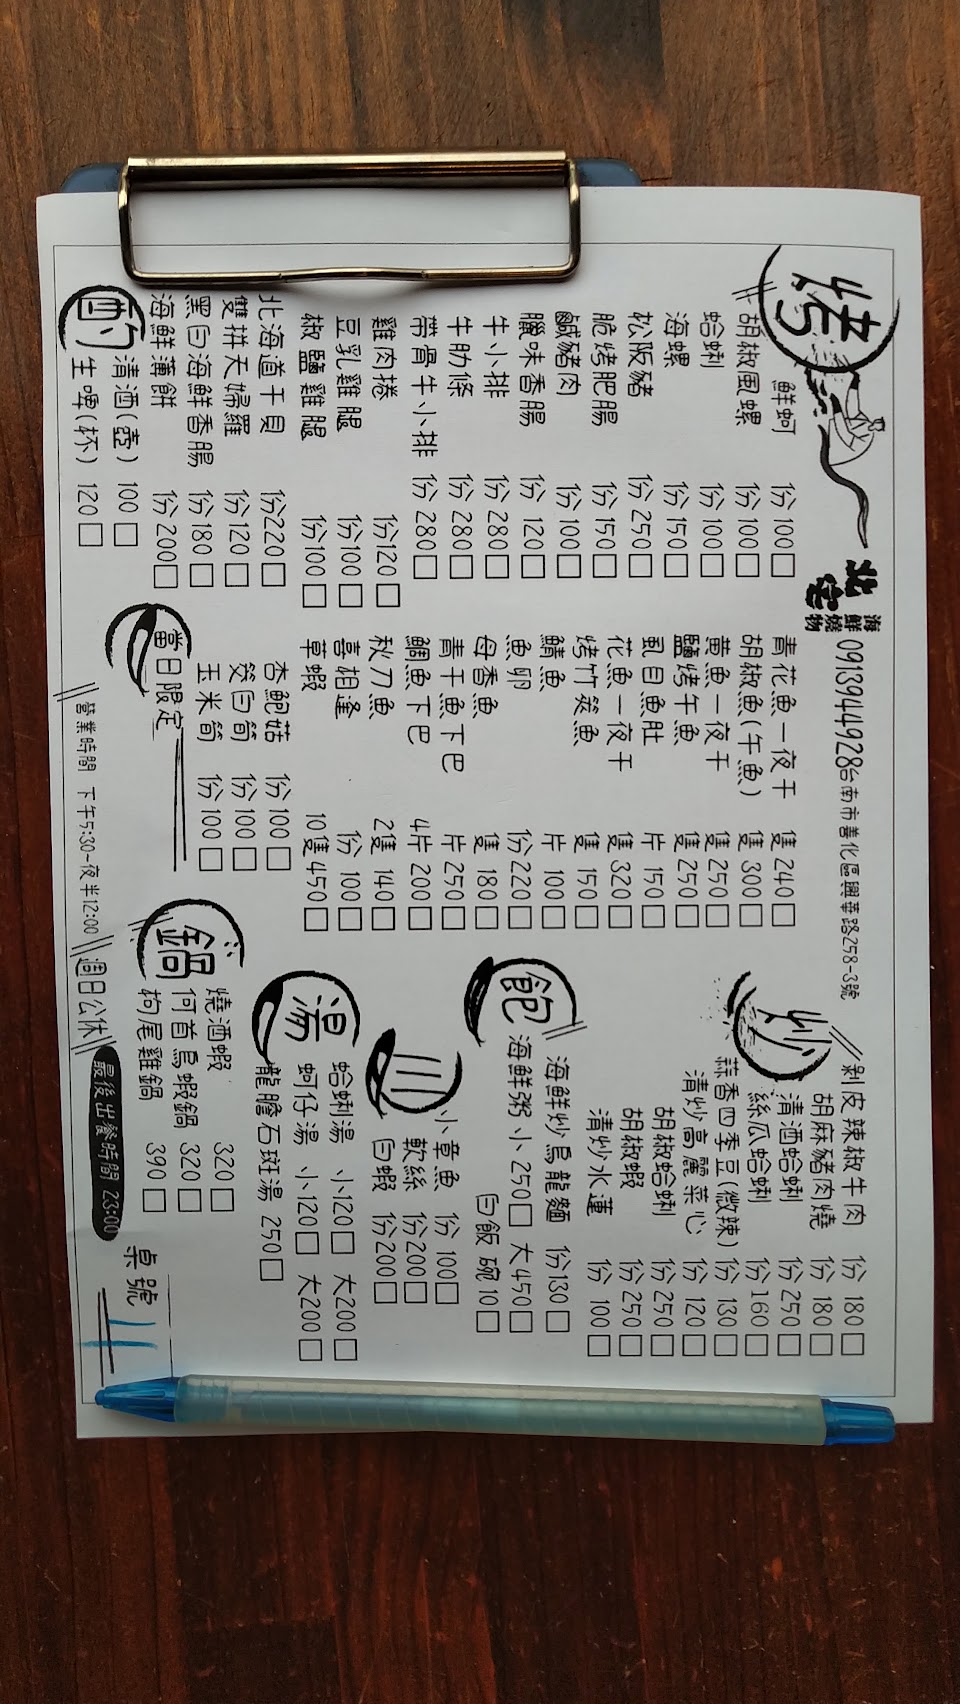 烤
鮮蚵 份100□
胡椒風螺 份100□
蛤蜊 份100□
海螺 份150□
松阪豬 份250□
脆烤肥腸 份150□
鹹豬肉 份100□
臘味香腸 份120□
牛小排 份280□
牛肋條 份280□
帶骨牛小排 份280□
雞肉捲 份120□
豆乳雞腿 份100□
椒鹽雞腿 份100□
北海道干貝 份220□
雙拼天婦羅 份120□
黑白海鮮香腸 份180□
海鮮薄餅 份200□
酌
清酒(壺) 100□
生啤(杯) 120□
海鮮
燒物
0913944928
台南市善化區興華路258-3號
青花魚一夜干 隻240□
胡椒魚(午魚) 隻300□
黃魚一夜干 隻250□
鹽烤午魚 隻250□
虱目魚肚 片150□
花魚一夜干 隻320□
烤竹筴魚 隻150□
鯖魚 片100□
魚卵 份220□
母香魚 隻180□
青干魚下巴 片250□
鯛魚下巴 4片200□
秋刀魚 2隻140□
喜相逢 份100□
草蝦 10隻450□
杏鮑菇 份100□
筊白筍 份100□
玉米筍 份100□
當日限定
炒
剝皮辣椒牛肉 份180□
胡麻豬肉燒 份180□
清酒蛤蜊 份250□
絲瓜蛤蜊 份160□
蒜香四季豆(微辣) 份130□
清炒高麗菜心 份120□
胡椒蛤蜊 份250□
胡椒蝦 份250□
清炒水蓮 份100□
飽
海鮮炒烏龍麵 份130□
海鮮粥 小250□ 大450□
白飯 碗10□
川
小章魚 份100□
軟絲 份200□
白蝦 份200□
湯
蛤蜊湯 小120□ 大200□
蚵仔湯 小120□ 大200□
龍膽石斑湯 250□
鍋
燒酒蝦 320□
何首烏蝦鍋 320□
枸尾雞鍋 390□
營業時間 下午5:30-夜半12:00
週日公休
最後出餐時間 23:00
桌號 11